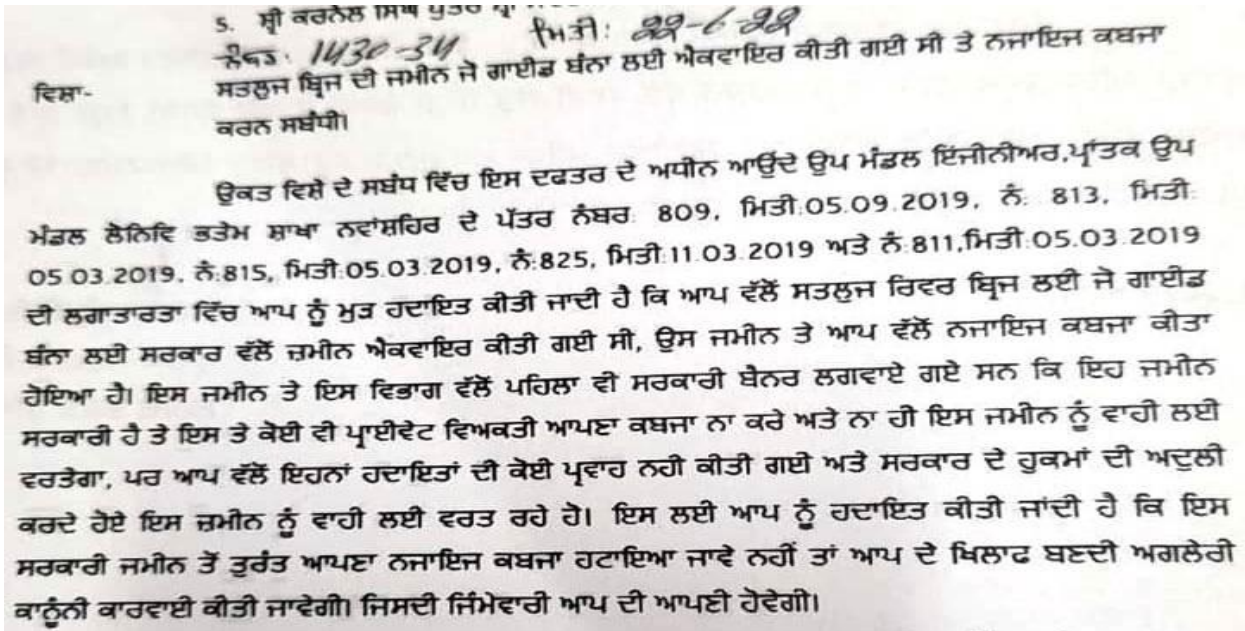 5. ਸ਼੍ਰੀ ਕਰਨੈਲ ਸਿੰਘ ਪੁੱਤਰ ਸ਼੍ਰੀ
ਨੰਬਰ: 1430-34 ਮਿਤੀ: 22-6-22
ਵਿਸ਼ਾ- ਸਤਲੁਜ ਬ੍ਰਿਜ ਦੀ ਜਮੀਨ ਜੋ ਗਾਈਡ ਬੰਨਾ ਲਈ ਐਕਵਾਇਰ ਕੀਤੀ ਗਈ ਸੀ ਤੇ ਨਜਾਇਜ ਕਬਜਾ
ਕਰਨ ਸਬੰਧੀ।
ਉਕਤ ਵਿਸ਼ੇ ਦੇ ਸਬੰਧ ਵਿੱਚ ਇਸ ਦਫਤਰ ਦੇ ਅਧੀਨ ਆਉਂਦੇ ਉਪ ਮੰਡਲ ਇੰਜੀਨੀਅਰ,ਪ੍ਰਾਂਤਕ ਉਪ
ਮੰਡਲ ਲੋਨਿਵਿ ਭਤੇਮ ਸ਼ਾਖਾ ਨਵਾਂਸ਼ਹਿਰ ਦੇ ਪੱਤਰ ਨੰਬਰ: 809, ਮਿਤੀ:05.09.2019, ਨੰ: 813, ਮਿਤੀ:
05.03.2019, ਨੰ:815, ਮਿਤੀ:05.03.2019, ਨੰ:825, ਮਿਤੀ:11.03.2019 ਅਤੇ ਨੰ:811,ਮਿਤੀ:05.03.2019
ਦੀ ਲਗਾਤਾਰਤਾ ਵਿੱਚ ਆਪ ਨੂੰ ਮੁੜ ਹਦਾਇਤ ਕੀਤੀ ਜਾਦੀ ਹੈ ਕਿ ਆਪ ਵੱਲੋਂ ਸਤਲੁਜ ਰਿਵਰ ਬ੍ਰਿਜ ਲਈ ਜੋ ਗਾਈਡ
ਬੰਨਾ ਲਈ ਸਰਕਾਰ ਵੱਲੋਂ ਜ਼ਮੀਨ ਐਕਵਾਇਰ ਕੀਤੀ ਗਈ ਸੀ, ਉਸ ਜਮੀਨ ਤੇ ਆਪ ਵੱਲੋਂ ਨਜਾਇਜ ਕਬਜਾ ਕੀਤਾ
ਹੋਇਆ ਹੈ। ਇਸ ਜਮੀਨ ਤੇ ਇਸ ਵਿਭਾਗ ਵੱਲੋਂ ਪਹਿਲਾ ਵੀ ਸਰਕਾਰੀ ਬੈਨਰ ਲਗਵਾਏ ਗਏ ਸਨ ਕਿ ਇਹ ਜਮੀਨ
ਸਰਕਾਰੀ ਹੈ ਤੇ ਇਸ ਤੇ ਕੋਈ ਵੀ ਪ੍ਰਾਈਵੇਟ ਵਿਅਕਤੀ ਆਪਣਾ ਕਬਜਾ ਨਾ ਕਰੇ ਅਤੇ ਨਾ ਹੀ ਇਸ ਜਮੀਨ ਨੂੰ ਵਾਹੀ ਲਈ
ਵਰਤੇਗਾ, ਪਰ ਆਪ ਵੱਲੋਂ ਇਹਨਾਂ ਹਦਾਇਤਾਂ ਦੀ ਕੋਈ ਪ੍ਰਵਾਹ ਨਹੀ ਕੀਤੀ ਗਈ ਅਤੇ ਸਰਕਾਰ ਦੇ ਹੁਕਮਾਂ ਦੀ ਅਦੂਲੀ
ਕਰਦੇ ਹੋਏ ਇਸ ਜ਼ਮੀਨ ਨੂੰ ਵਾਹੀ ਲਈ ਵਰਤ ਰਹੇ ਹੋ। ਇਸ ਲਈ ਆਪ ਨੂੰ ਹਦਾਇਤ ਕੀਤੀ ਜਾਂਦੀ ਹੈ ਕਿ ਇਸ
ਸਰਕਾਰੀ ਜਮੀਨ ਤੋਂ ਤੁਰੰਤ ਆਪਣਾ ਨਜਾਇਜ ਕਬਜਾ ਹਟਾਇਆ ਜਾਵੇ ਨਹੀਂ ਤਾਂ ਆਪ ਦੇ ਖਿਲਾਫ ਬਣਦੀ ਅਗਲੇਰੀ
ਕਾਨੂੰਨੀ ਕਾਰਵਾਈ ਕੀਤੀ ਜਾਵੇਗੀ। ਜਿਸਦੀ ਜਿੰਮੇਵਾਰੀ ਆਪ ਦੀ ਆਪਣੀ ਹੋਵੇਗੀ।